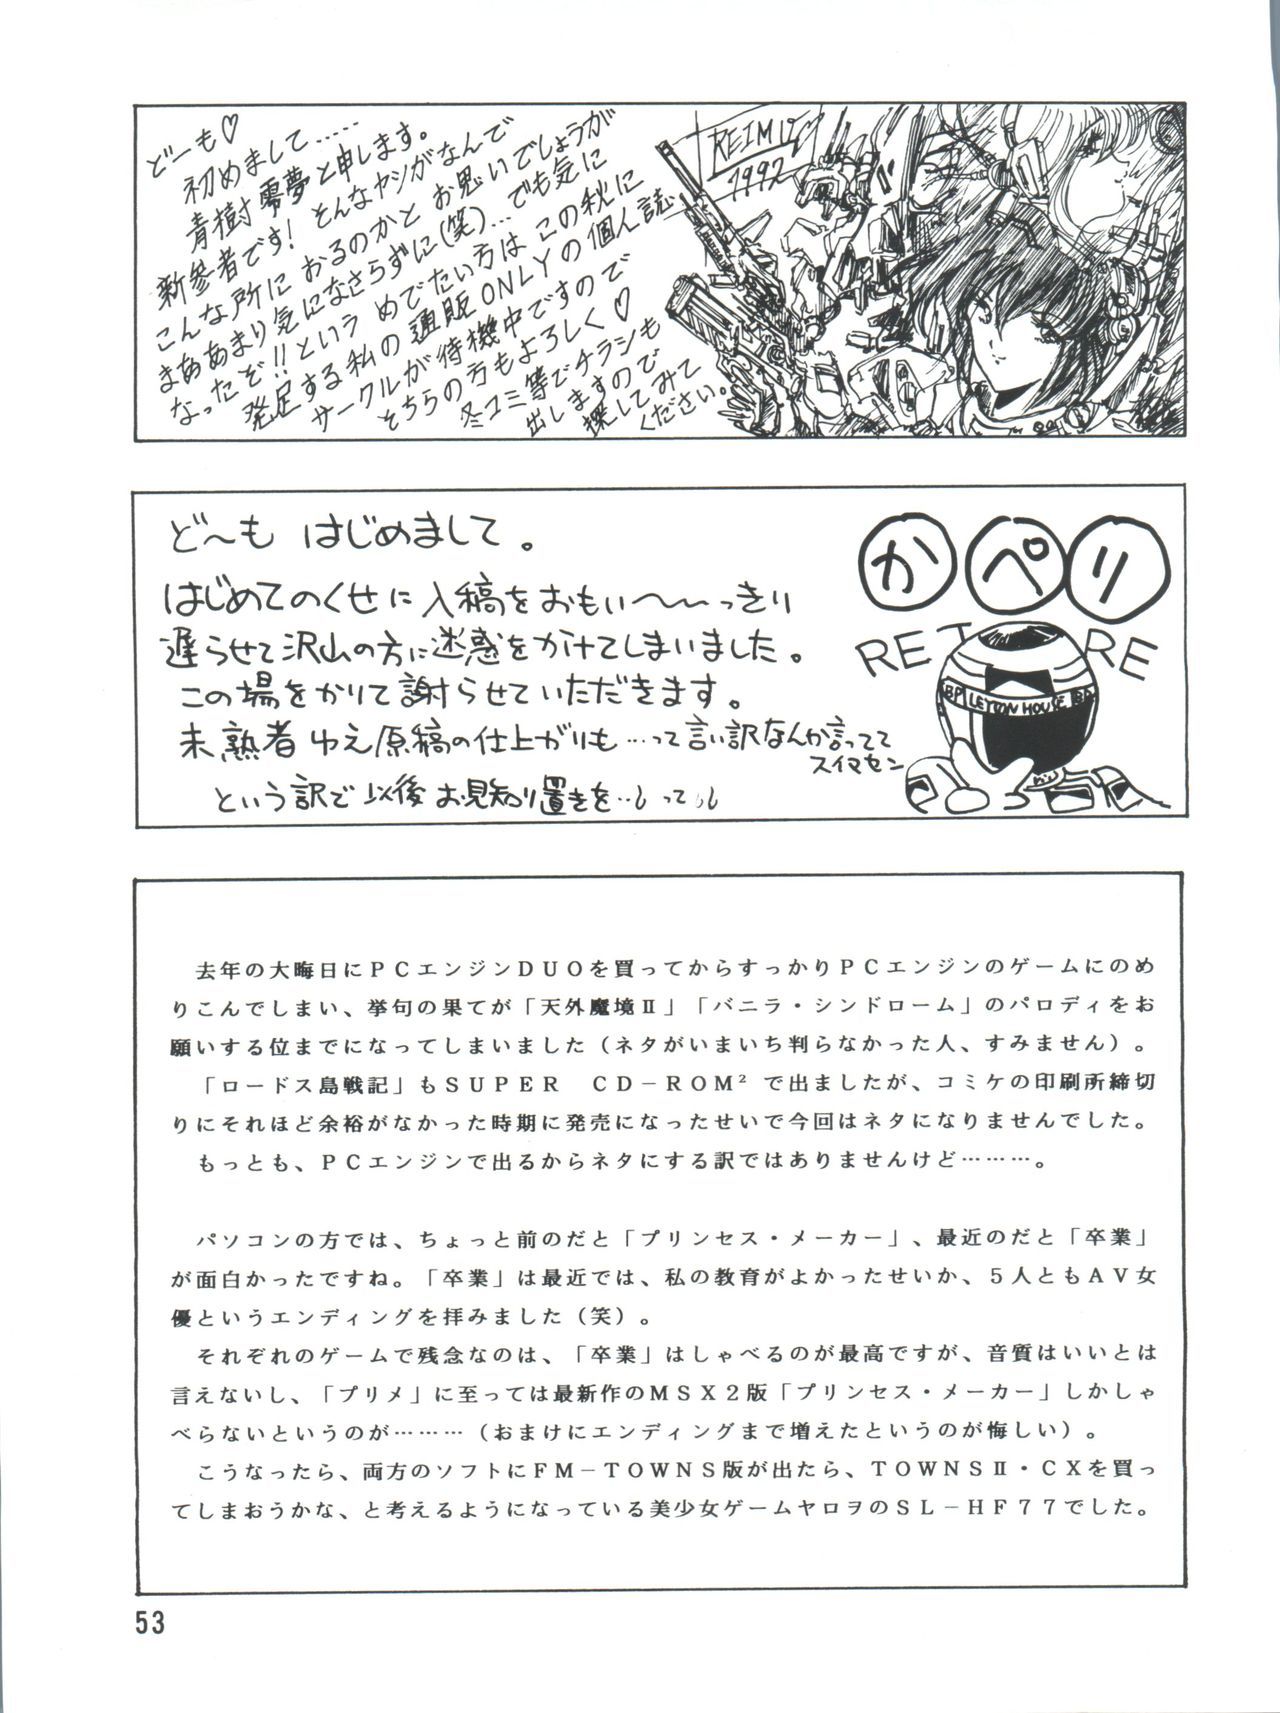 どーも♡
初めまして……
青樹零夢と申します。
新参者です! そんなヤシがなんで
こんな所におるのかと お思いでしょうが
まああまり気になさらずに(笑)…でも気に
なったぞ!!という めでたい方は この秋に
発足する私の通販ONLYの個人誌
サークルが待機中ですので
そちらの方もよろしく♡
冬コミ等でチラシも
出しますので
探してみて
ください。
REIMU
1992
ど〜も はじめまして。
はじめてのくせに入稿をおもい〜〜っきり
遅らせて沢山の方に迷惑をかけてしまいました。
この場をかりて謝らせていただきます。
未熟者ゆえ原稿の仕上がりも…って言い訳なんか言ってて
スイマセン
という訳で以後お見知り置きを…
かぺり
RETIRE
BP LEYTON HOUSE BP
去年の大晦日にPCエンジンDUOを買ってからすっかりPCエンジンのゲームにのめ
りこんでしまい、挙句の果てが「天外魔境Ⅱ」「バニラ・シンドローム」のパロディをお
願いする位までになってしまいました(ネタがいまいち判らなかった人、すみません)。
「ロードス島戦記」もSUPER CD-ROM²で出ましたが、コミケの印刷所締切
りにそれほど余裕がなかった時期に発売になったせいで今回はネタになりませんでした。
もっとも、PCエンジンで出るからネタにする訳ではありませんけど………。
パソコンの方では、ちょっと前のだと「プリンセス・メーカー」、最近のだと「卒業」
が面白かったですね。「卒業」は最近では、私の教育がよかったせいか、5人ともAV女
優というエンディングを拝みました(笑)。
それぞれのゲームで残念なのは、「卒業」はしゃべるのが最高ですが、音質はいいとは
言えないし、「プリメ」に至っては最新作のMSX2版「プリンセス・メーカー」しかしゃ
べらないというのが………(おまけにエンディングまで増えたというのが悔しい)。
こうなったら、両方のソフトにFM-TOWNS版が出たら、TOWNSⅡ・CXを買っ
てしまおうかな、と考えるようになっている美少女ゲームヤロヲのSL-HF77でした。
53